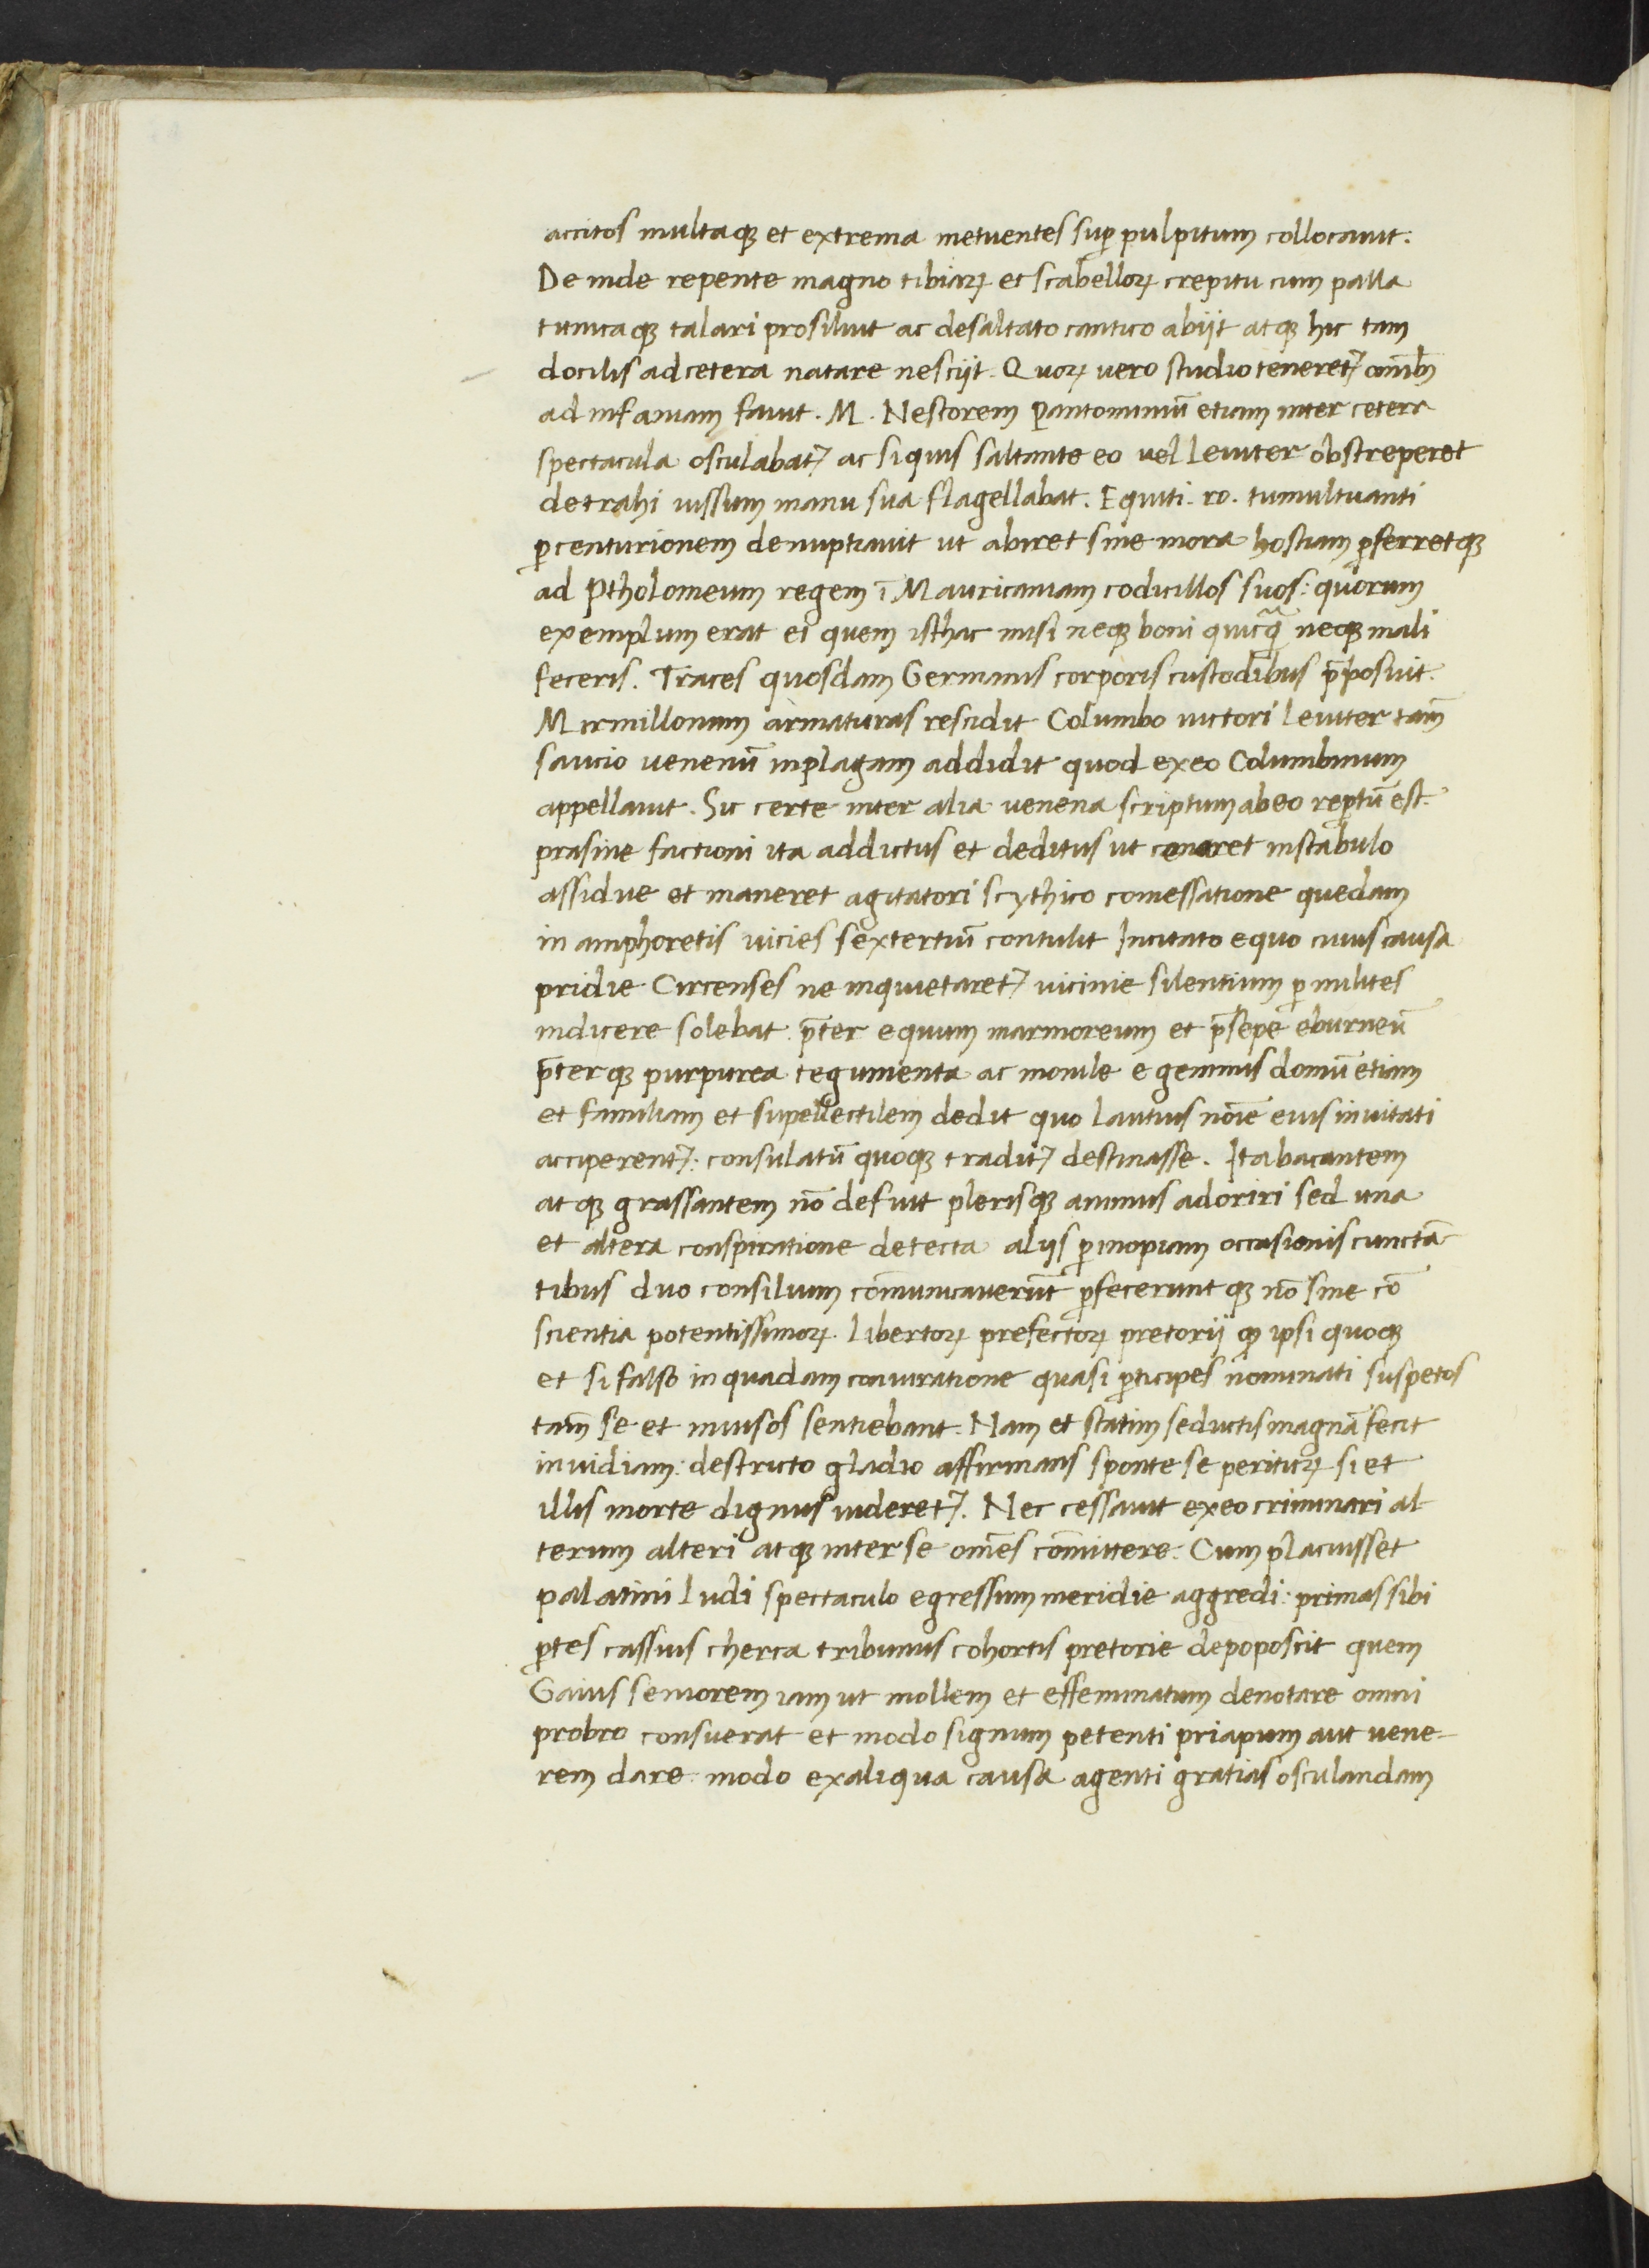 accitos multaqꝫ et extrema metuentes suꝑ pulpitum collocauit:
De inde repente magno tibiaꝝ et scabelloꝝ crepitu cum palla
tunicaqꝫ talari prosiluit ac desaltato cantico abijt atqꝫ hic tam
docilis ad cetera natare nescijt. Quoꝝ uero studio teneret᷑ omībꝫ
ad insaniam fauit. M. Nestorem Pantomimū etiam inter cetera
spectacula osculabat᷑ ac si quis saltante eo uel leuiter obstreperet
detrahi iussum manu sua flagellabat. Equiti. ro. tumultuanti
ꝑ centurionem denuptiauit ut abiret sine mora hostiam ꝑferretqꝫ
ad Ptholomeum regem ī Mauritaniam codicillos suos: quorum
exemplum erat ei quem isthac misi neqꝫ boni quicq̄ neqꝫ mali
feceris. Traces quosdam Germanis corporis custodibus p̄posuit.
Mirmillonum armaturas rescidit Columbo uictori leuiter tam̄
saucio uenenū in plagam addidit quod ex eo Columbinum
appellauit. Sic certe inter alia uenena scriptum ab eo reꝑtū est.
prasine factioni ita addictus et deditus ut cenaret in stabulo
assidue et maneret agitatori scythico comessatione quedam
in amphoretis uicies sextertiū contulit Incitato equo cuius causa
pridie Circenses ne inquietaret᷑ uicinie silentium ꝑ milites
indicere solebat. p̄ter equum marmoreum et p̄sepe eburneū
p̄terqꝫ purpurea tegumenta ac monile e gemmis domū etiam
et familiam et supellectilem dedit quo lautius noīe eius inuitati
acciperent᷑: consulatū quoqꝫ tradit᷑ destinasse. Ita bacantem
atqꝫ grassantem nō defuit plerisqꝫ animus adoriri sed una
et altera conspiratione detecta alijs ꝑ inopiam occasionis cunctā
tibus duo consilium cōmunicauerūt ꝑfecerunt qꝫ nō sine cō
scientia potentissimoꝝ. libertoꝝ prefectoꝝ pretorij qꝫ ipsi quoqꝫ
et si falso in quadam coniuratione quasi ꝑticipes nominati suspetos
tam̄ se et inuisos sentiebant. Nam et statim seductis magnā fecit
inuidiam: destricto gladio affirmans sponte se perituꝝ si et
illis morte dignus uideret᷑. Nec cessauit ex eo criminari al
terum alteri atqꝫ inter se omēs cōmittere. Cum placuisset
palatini ludi spectaculo egressum meridie aggredi: primas sibi
ꝑtes cassius cherea tribunus cohortis pretorie depoposcit quem
Gaius seniorem iam ut mollem et effeminatum denotare omni
probro consuerat et modo signum petenti priapum aut uene-
rem dare: modo ex aliqua causa agenti gratias osculandam